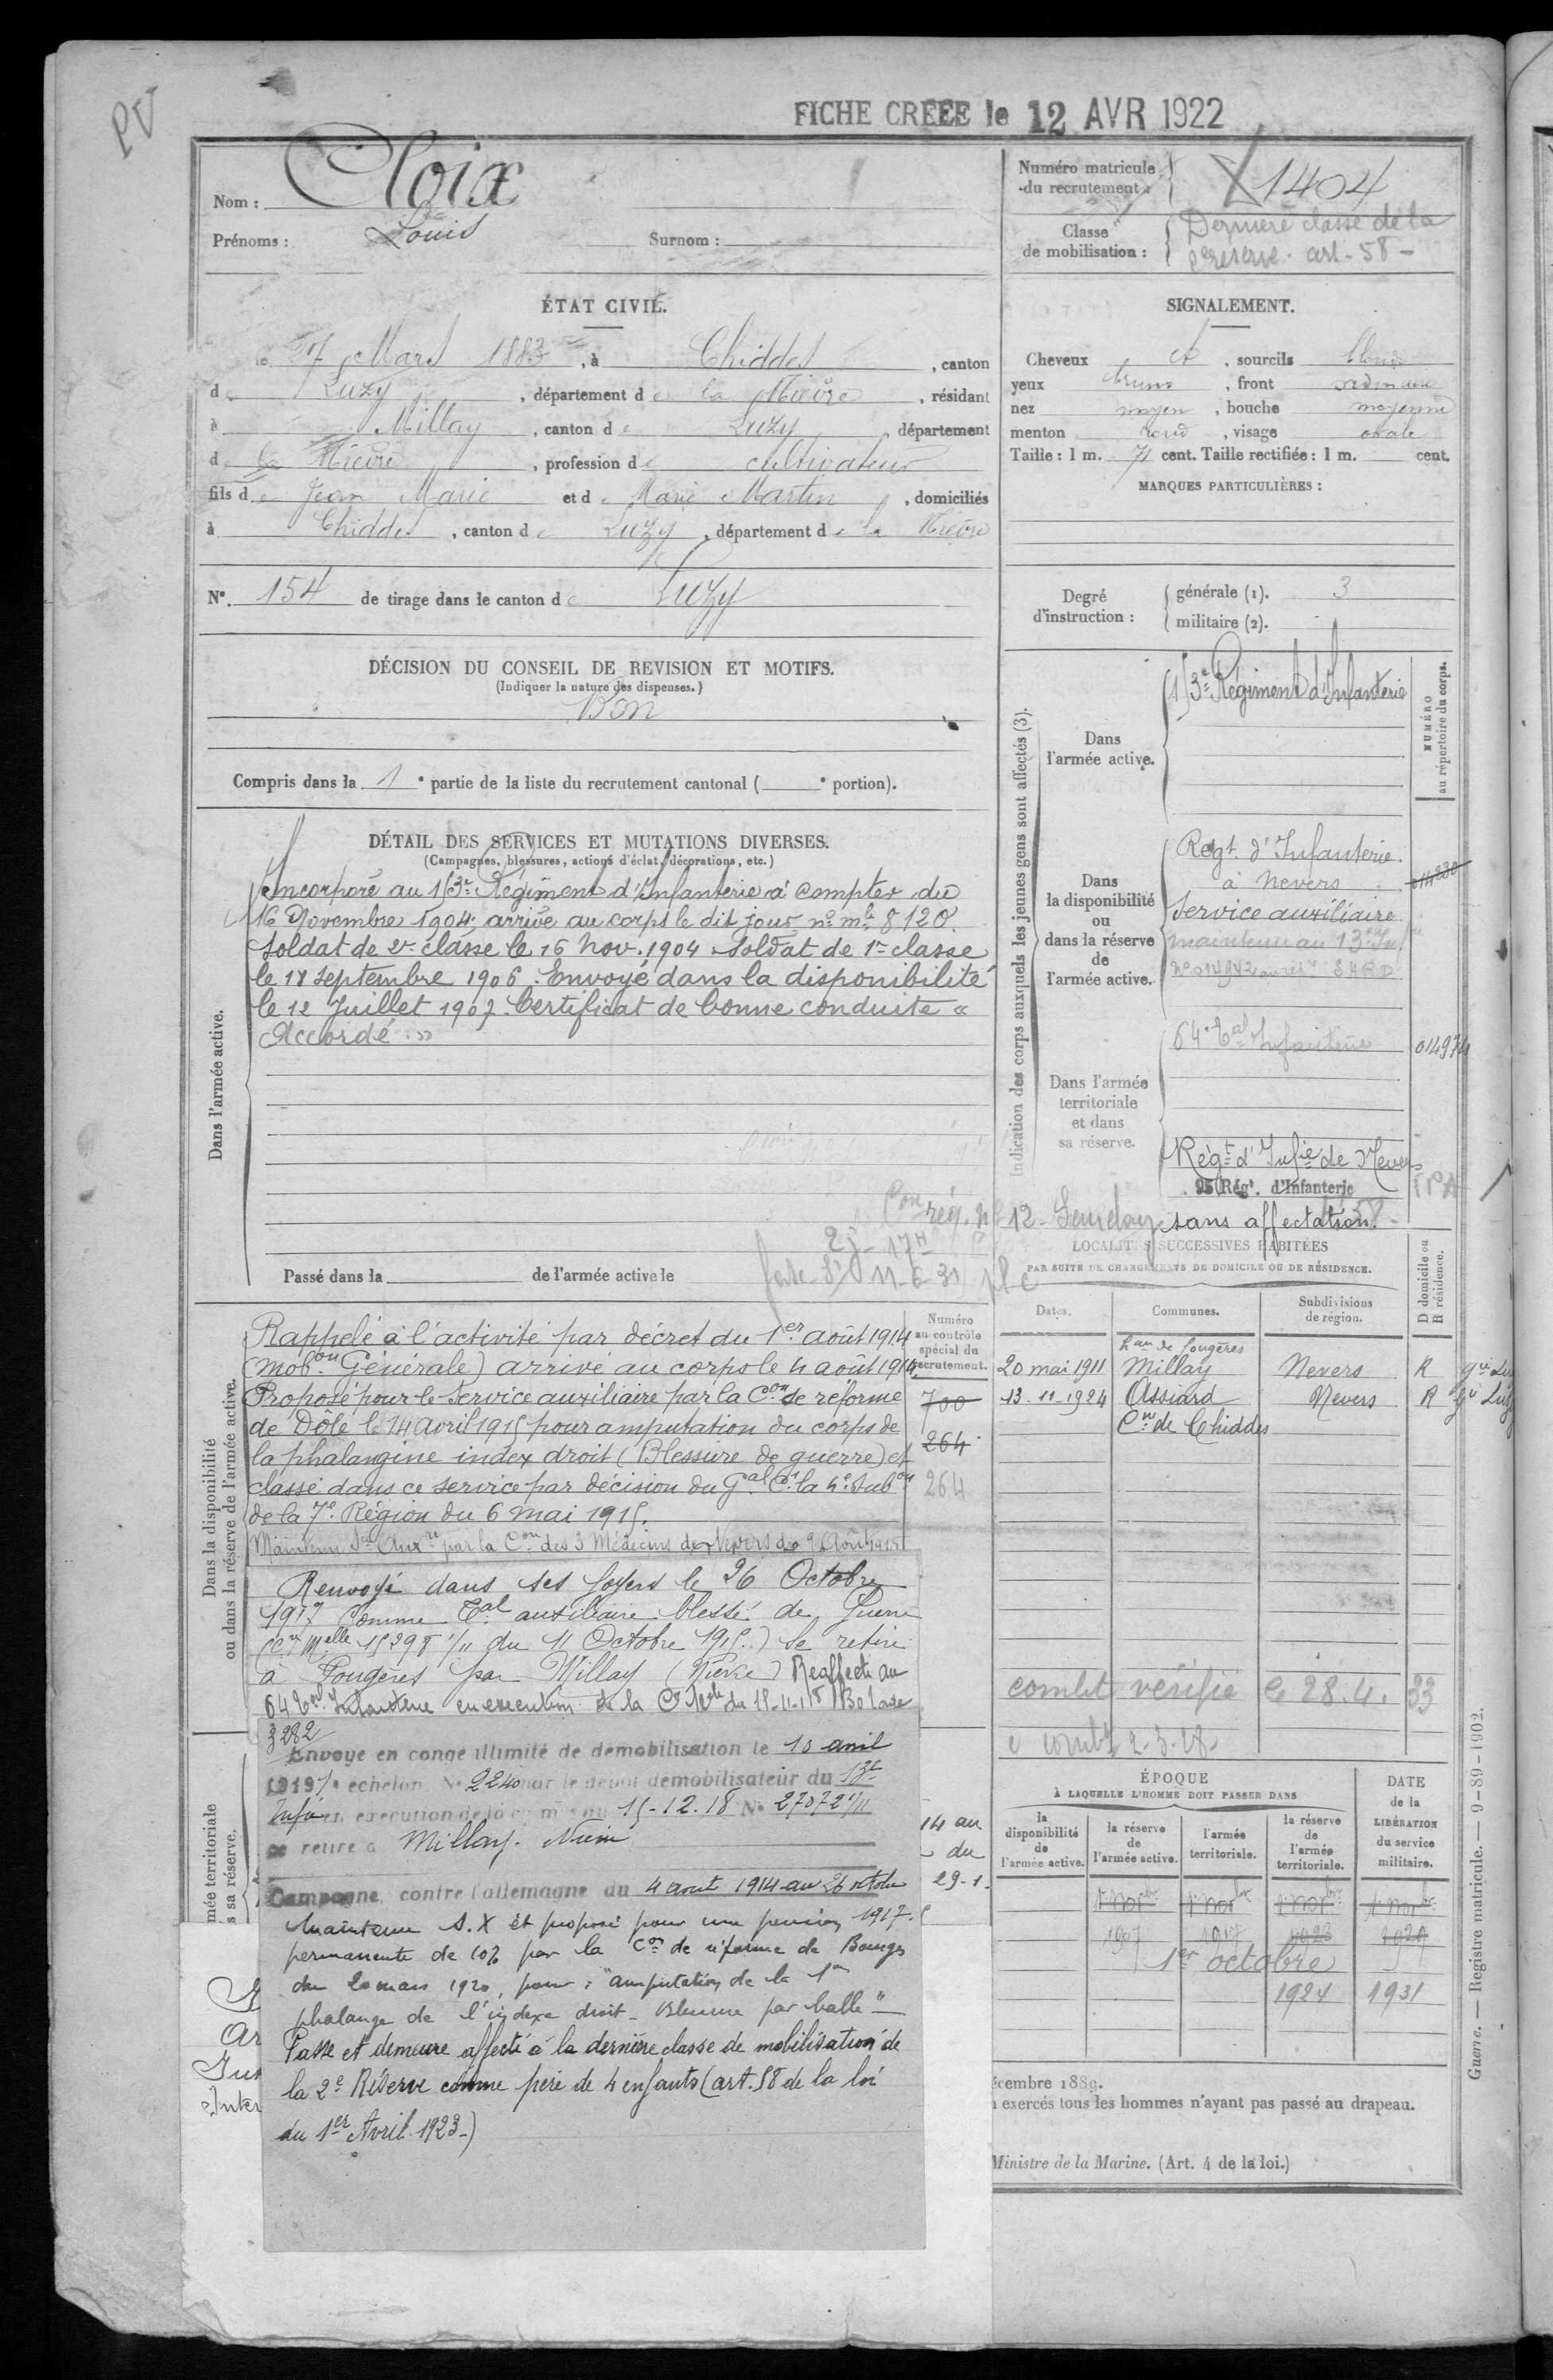 PV
FICHE CRÉÉE le 12 AVR 1922
Nom : Cloix
Prénoms : Louis Surnom :
Numéro matricule du recrutement : 1404
Classe de mobilisation : Dernière classe de la 2e réserve. art-58-
ÉTAT CIVIL.
27 Mars 1883, à Chiddes, canton
de Luzy, département de la Nièvre, résidant
à Millay, canton de Luzy, département
de la Nièvre, profession de cultivateur
fils de Jean Marie et de Marie Martin, domiciliés
à Chiddes, canton de Luzy, département de la Nièvre
N° 154 de tirage dans le canton de Luzy
SIGNALEMENT.
Cheveux et, sourcils
yeux bruns, front ordinaire
nez moyen, bouche moyenne
menton rond, visage ovale
Taille : 1 m. 71 cent. Taille rectifiée : 1 m. cent.
MARQUES PARTICULIÈRES :
Degré d'instruction : générale (1). 3
militaire (2).
DÉCISION DU CONSEIL DE REVISION ET MOTIFS.
(Indiquer la nature des dispenses.)
Bon
Compris dans la 1e partie de la liste du recrutement cantonal ( e portion).
DÉTAIL DES SERVICES ET MUTATIONS DIVERSES.
(Campagnes, blessures, actions d'éclat, décorations, etc.)
Dans l'armée active.
Incorporé au 13e Régiment d'Infanterie à compter du
16 Novembre 1904, arrivé au corps le dit jour, no mle 8120.
Soldat de 2e classe le 16 Nov. 1904 Soldat de 1re classe
le 18 septembre 1906. Envoyé dans la disponibilité
le 12 Juillet 1907 Certificat de bonne conduite «
Accordé »
Passé dans la de l'armée active le
11-6-31
Indication des corps auxquels les jeunes gens sont affectés (3).
NUMÉRO au répertoire du corps.
Dans l'armée active.
13e Régiment d'Infanterie
Dans la disponibilité ou dans la réserve de l'armée active.
Regt. d'Infanterie
à Nevers
Service auxiliaire
maintenu au 13e Inf
Dans l'armée territoriale et dans sa réserve.
64e Tal Infanterie 014974
Régt d'Infie de Nevers
95 Régt. d'Infanterie
sans affectation.
LOCALITÉS SUCCESSIVES HABITÉES
PAR SUITE DE CHANGEMENTS DE DOMICILE OU DE RÉSIDENCE.
Dates. Communes. Subdivisions de région. D domicile ou R résidence.
hau de fougères
20 mai 1911 Millay Nevers R
13-11-1924 Assiard Nevers R
Cne de Chiddes
vérifié le 28.4.33
Dans la disponibilité ou dans la réserve de l'armée active.
Numéro au contrôle spécial du recrutement.
700
264
264
Rappelé à l'activité par décret du 1er août 1914
(mobon Générale) arrivé au corps le 4 août 1914.
Proposé pour le service auxiliaire par la Con de réforme
de Dôle le 14 avril 1915 pour amputation du corps de
la phalangine index droit (Blessure de guerre) et
classé dans ce service par décision du Gal Ct la 4e Subon
de la 7e Région du 6 mai 1915.
Maintenu Sce Auxre par la Con des 3 Médecins de Nevers du 9 Août 1915
Renvoyé dans ses foyers le 26 Octobre
1917 comme Tal auxiliaire blessé de Guerre
(Cre Melle 15298 1/11 du 11 Octobre 1915.) Se retire
à Fougères par Millay (Nièvre) Réaffecté au
64e Tal Infanterie en exécution de la Cre
3282
Envoyé en congé illimité de démobilisation le 10 avril
1919 7e échelon N° 2240 par le dépôt démobilisateur du 13e
Infie en exécution de la cre mlle du 15-12-18 N° 27072 1/11
se retire à Millay. Nièvre
Campagne contre l'allemagne du 4 août 1914 au 26 octobre
1917.
Maintenu S.X et proposé pour une pension
permanente de 10% par la Con de réforme de Bourges
du 20 mars 1920, pour : "amputation de la 1re
phalange de l'index droit - Blessure par balle"
Passe et demeure affecté à la dernière classe de mobilisation de
la 2e Réserve comme père de 4 enfants (art. 58 de la loi
du 1er Avril 1923-)
14 au
du
29-1-
ÉPOQUE
À LAQUELLE L'HOMME DOIT PASSER DANS
la disponibilité de l'armée active. la réserve de l'armée active. l'armée territoriale. la réserve de l'armée territoriale.
DATE de la LIBÉRATION du service militaire.
1er novbre 1er novbre 1er novbre 1er novbre
1907 1917 1923 1929
1er octobre
1924 1931
écembre 1889.
exercés tous les hommes n'ayant pas passé au drapeau.
Ministre de la Marine. (Art. 4 de la loi.)
Guerre. — Registre matricule. — 9-89-1902.